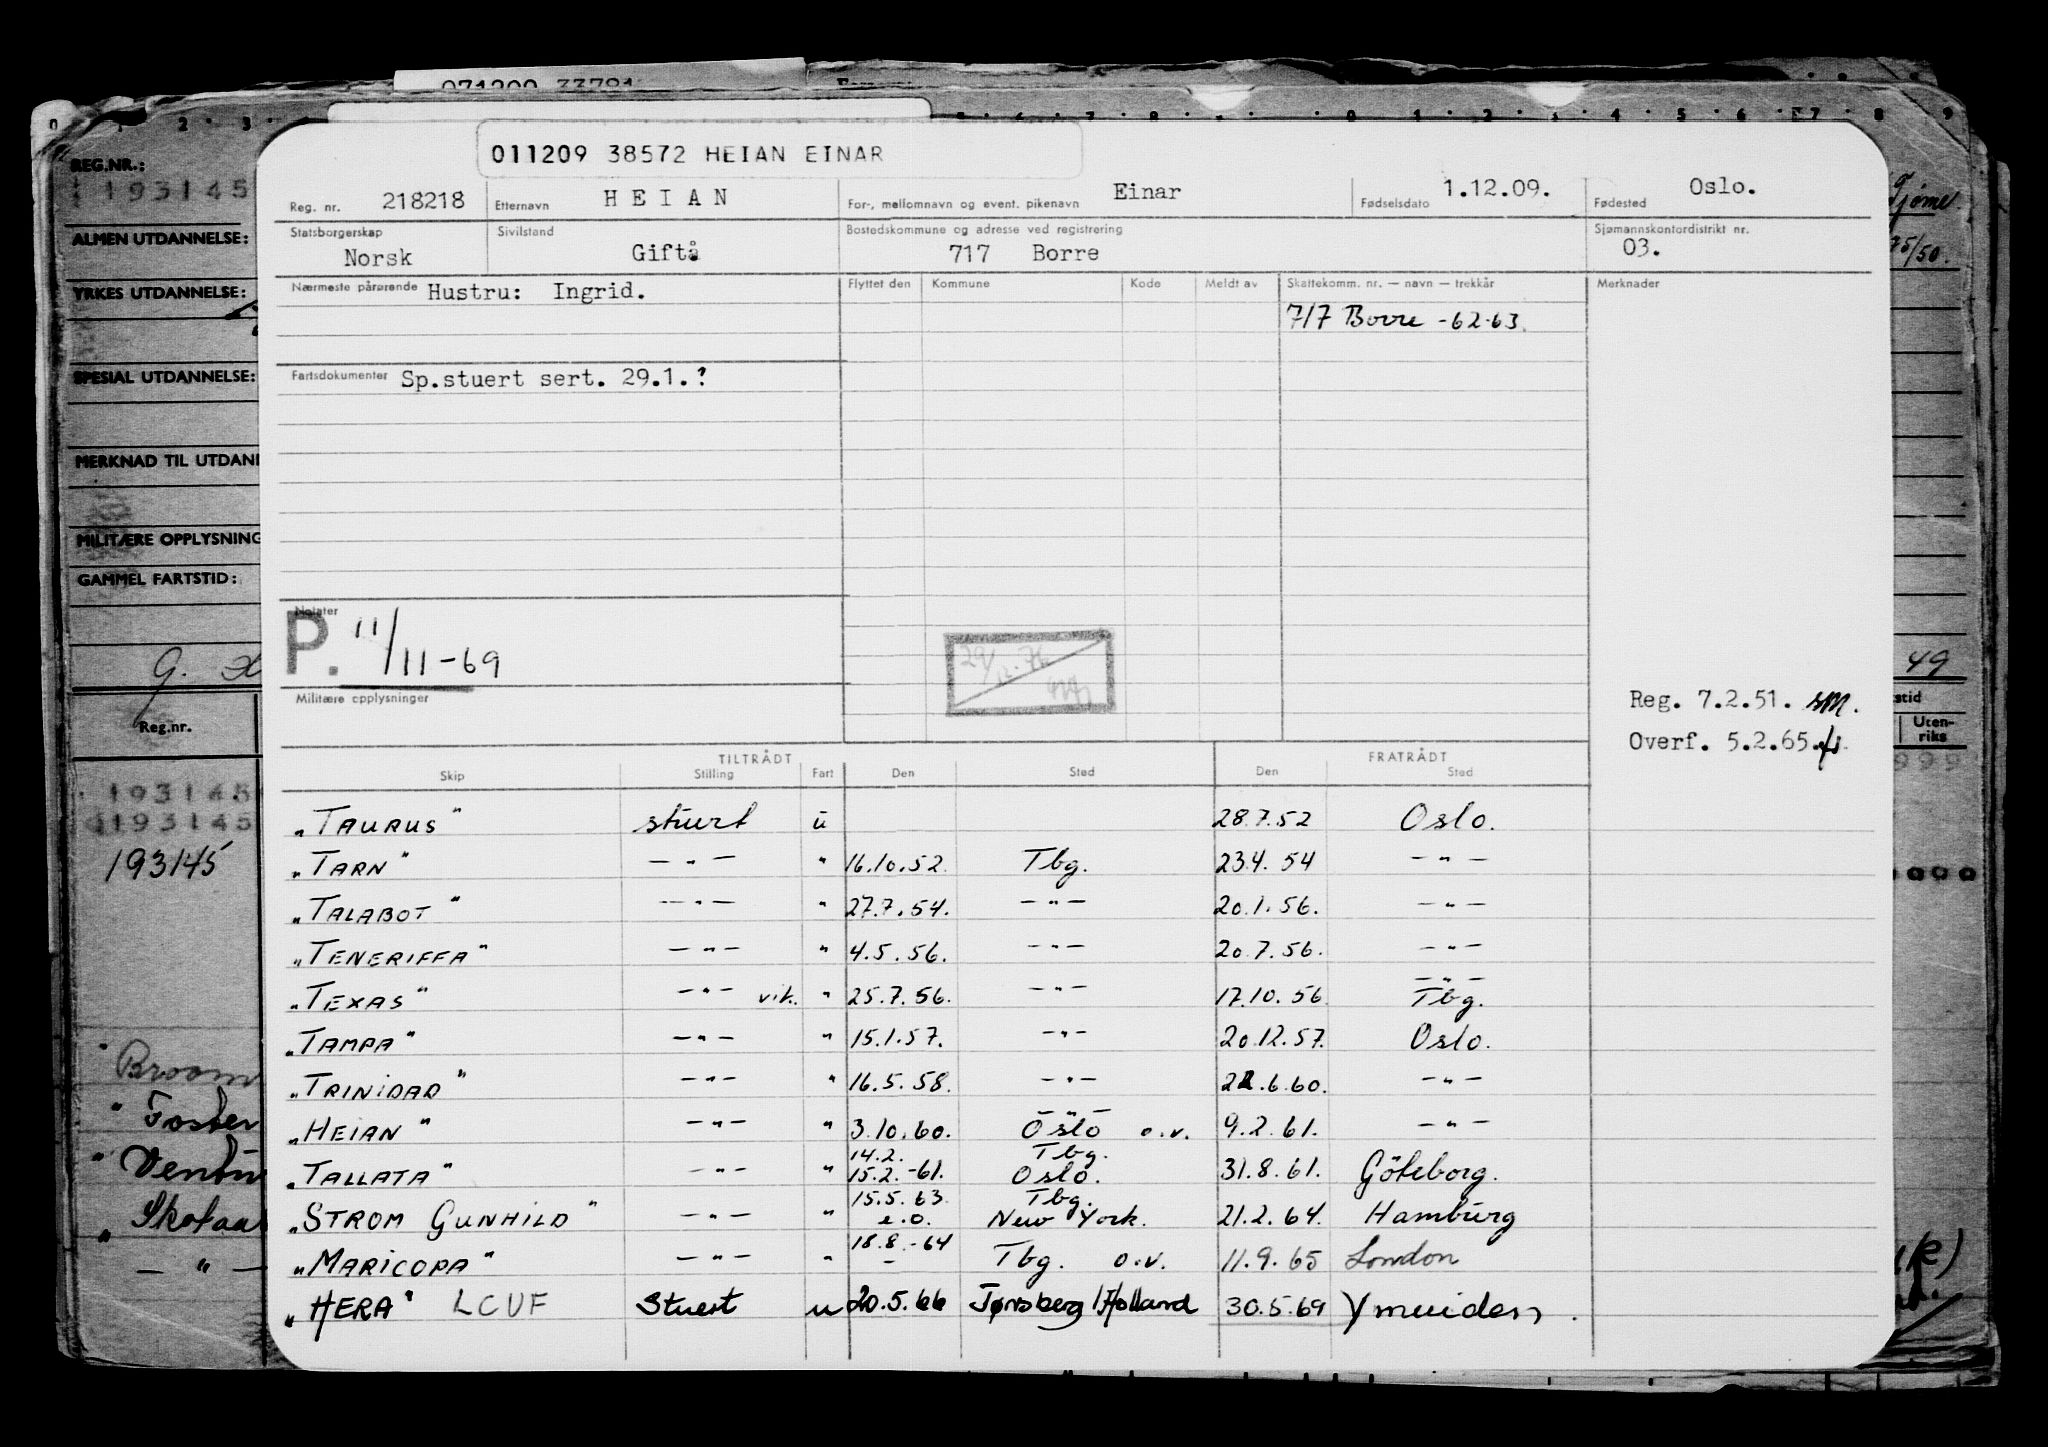 071209 33781
011209 38572 HEIAN EINAR
Reg. nr. 218218 Etternavn HEIAN For-, mellomnavn og event. pikenavn Einar Fødselsdato 1.12.09. Fødested Oslo.
Statsborgerskap Norsk Sivilstand Gift Bostedskommune og adresse ved registrering 717 Borre Sjømannskontordistrikt nr. 03.
Nærmeste pårørende Hustru: Ingrid. Flyttet den Kommune Kode Meldt av Skattekomm. nr. — navn — trekkår Merknader
717 Borre -62-63.
Fartsdokumenter Sp.stuert sert. 29.1.?
Notater
P. 11/11-69
Militære opplysninger
Reg. 7.2.51. sm.
Overf. 5.2.65.
TILTRÅDT FRATRÅDT
Skip Stilling Fart Den Sted Den Sted
"TAURUS" stuert u 28.7.52 Oslo.
"TARN" — " — " 16.10.52. Tbg. 23.4.54 — " —
"TALABOT" — " — " 27.7.54. — " — 20.1.56. — " —
"TENERIFFA" — " — " 4.5.56. — " — 20.7.56. — " —
"TEXAS" — " — vik. " 25.7.56. — " — 17.10.56 — " — Tbg.
"TAMPA" — " — " 15.1.57. — " — 20.12.57. Oslo.
"TRINIDAD" — " — " 16.5.58. — " — 22.6.60. — " —
"HEIAN" — " — " 3.10.60. — " — Oslo o.v. 9.2.61. — " —
14.2. Tbg.
"TALLATA" — " — " 15.2.-61. Oslo. 31.8.61. Göteborg.
15.5.63 Tbg.
"STROM GUNHILD" — " — " e.o. New York. 21.2.64. Hamburg
18.8.-64
"MARICOPA" — " — " – Tbg. o.v. 11.9.65 London
"HERA" LCUF Stuert u 20.5.66 Tønsberg/Holland 30.5.69 Ymuiden.
REG.NR.:
193145
ALMEN UTDANNELSE:
YRKES UTDANNELSE:
SPESIAL UTDANNELSE:
MERKNAD TIL UTDAN
MILITÆRE OPPLYSNING
GAMMEL FARTSTID:
Reg.nr.
193145
193145
193145
Broom
" Foster
"
"
— " —
Tjøme
75/50.
49
stid
Uten-
riks
999